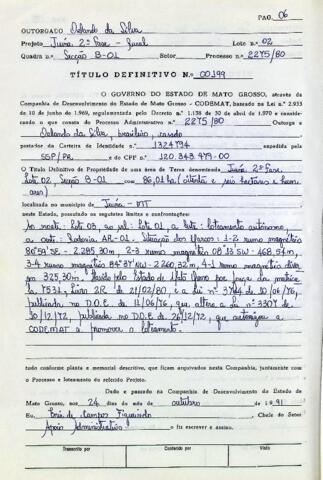 PAG. 06
OUTORGADO Orlando da Silva
Projeto Juína 2ª Fase - Rural Lote n.º 02
Quadra n.º Secção B-01 Setor Processo n.º 2275/80
TÍTULO DEFINITIVO N.º 00199
O GOVERNO DO ESTADO DE MATO GROSSO, através da
Companhia de Desenvolvimento do Estado de Mato Grosso - CODEMAT, baseado na Lei n.º 2.933
de 10 de junho de 1969, regulamentada pelo Decreto n.º 1.138 de 30 de abril de 1970 e conside-
rando o que consta do Processo Administrativo n.º 2275/80 Outorga a
Orlando da Silva, brasileiro, casado
portador da Carteira de Identidade n.º 1324734 expedida pela
SSP/PR e do CPF n.º 120.343.479-00
O Título Definitivo de Propriedade de uma área de Terra denominada Juína 2ª Fase
Lote 02, Secção B-01 com 86,01 ha (oitenta e seis hectares e hum
are)
localizada no município de Juína - MT
neste Estado, possuindo os seguintes limites e confrontações:
Ao norte: Lote 03, ao sul: Lote 01, a leste: loteamento autônomo,
a oeste: Rodovia AR-01. Situação dos Marcos: 1-2 rumo magnético
86º54' SE - 2.285,30m 2-3 rumo magnético 08º13' SW - 468,54m,
3-4 rumo magnético 84º37' NW - 2.260,32m, 4-1 rumo magnético
325,30m. Havido pelo Estado de Mato Grosso por força da matrícu
la 7531, Livro 2R de 21/02/80, e a Lei nº 3744 de 10/06/76,
publicada no D.O.E. de 11/06/76, que altera a Lei nº 3307 de
/12/72, publicada no D.O.E. de 26/12/72, que autorizou a
CODEMAT a promover o loteamento.
tudo conforme planta e memorial descritivo, que ficam arquivados nesta Companhia, juntamente com
o Processo e loteamento do referido Projeto.
Dado e passado na Companhia de Desenvolvimento do Estado de
Mato Grosso, aos 24 dias do mês de outubro de 1991
Eu, de Campos Figueiredo, Chefe do Setor
Apoio Administrativo o fiz escrever e assino.
Transcrito por Conferido por Visto